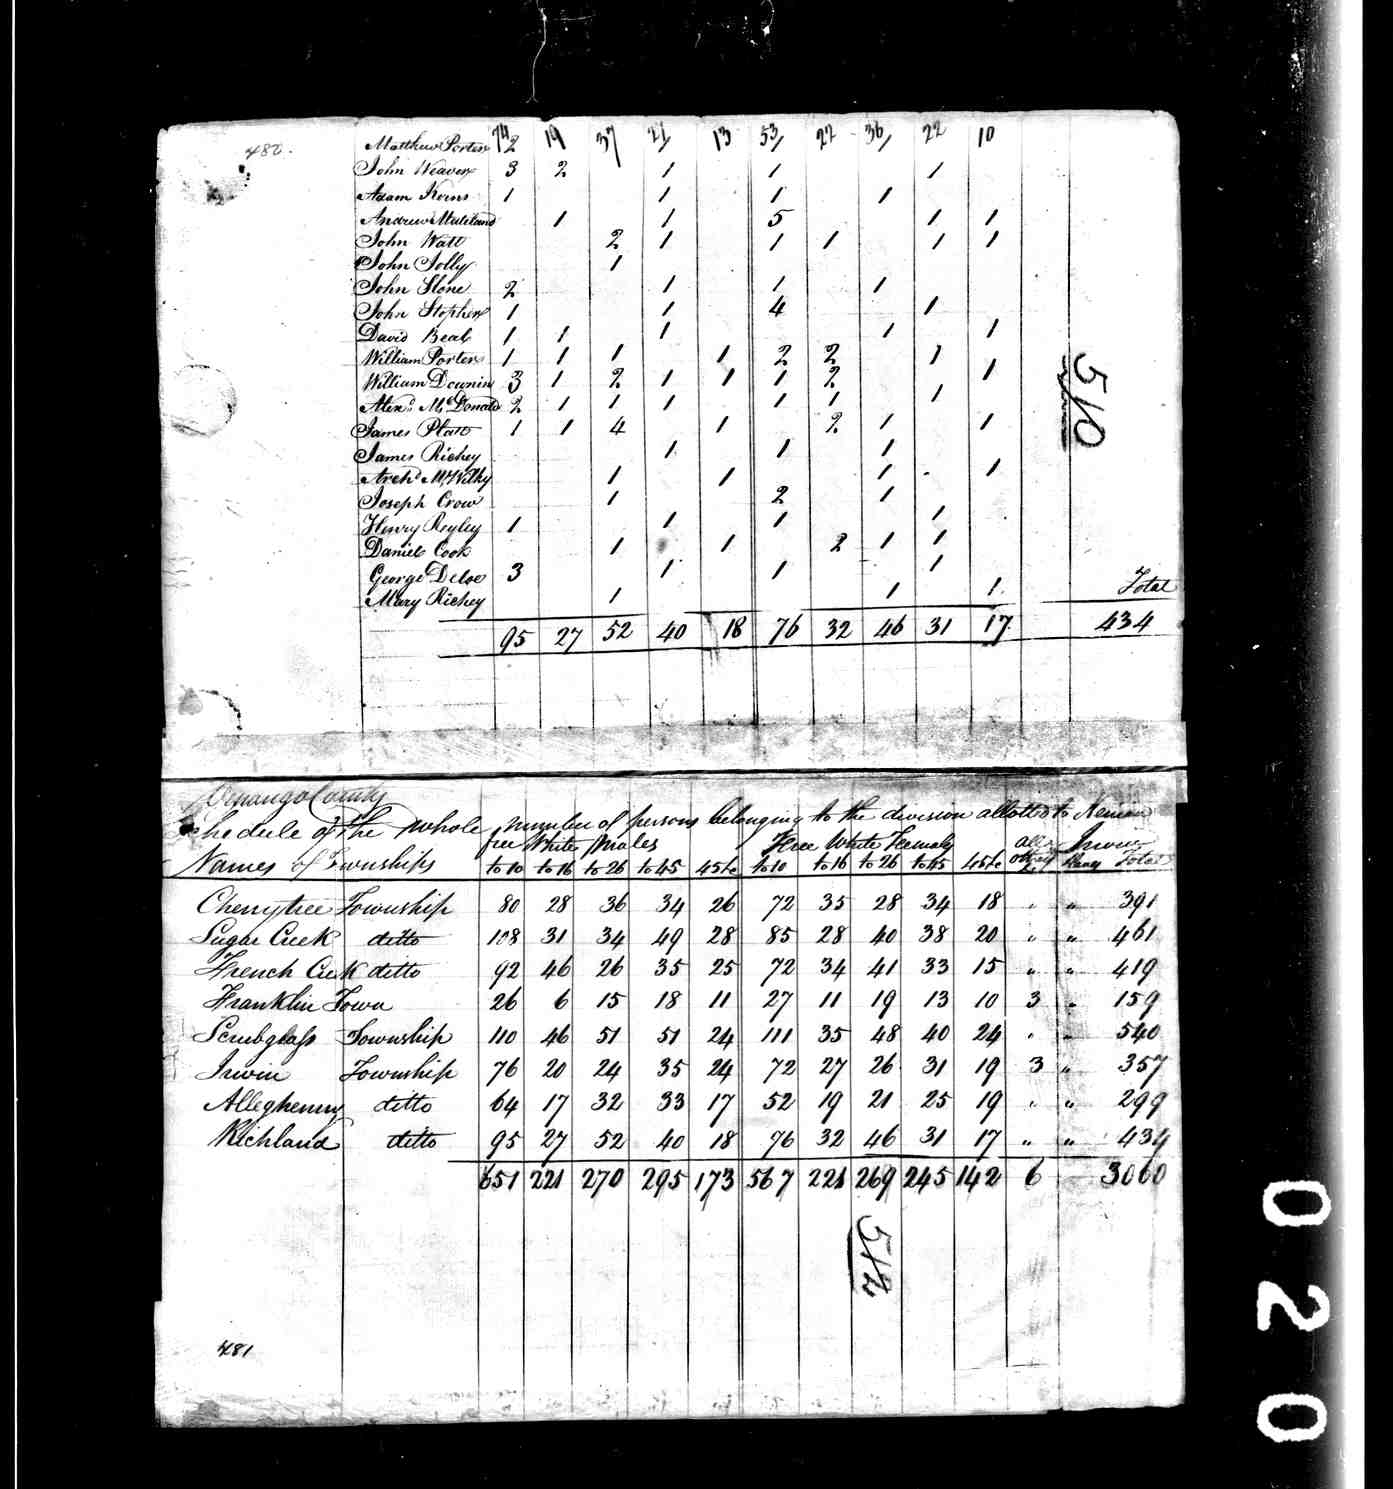 482.
74 19 37 21 13 53 22 36 22 10
Matthew Porter 2 1 1 1
John Weaver 3 2 1 1 1
Adam Kerns 1 1 1 1
Andrew Maitland 1 1 5 1 1
John Watt 2 1 1 1 1 1
John Jolly 1
John Slone 2 1 1 1
John Stephen 1 1 4 1
David Beal 1 1 1 1 1
William Porter 1 1 1 1 2 2 1
William Downin 3 1 2 1 1 1 2 1
Alexr. McDonald 2 1 1 1 1 1 1
James Platt 1 1 4 1 2 1 1
James Richey 1 1 1
Archd 1 1 1 1
Joseph Crow 1 2 1
Henry Reyley 1 1 1 1
Daniel Cook 1 1 2 1 1
George Deloe 3 1 1 1
Mary Richey 1 1 1 Total
95 27 52 40 18 76 32 46 31 17 434
510
Venango County
Schedule of the whole number of persons belonging to the division allotted to
free White Males Free White Females all Irwin
Names of Townships to 10 to 16 to 26 to 45 45 &c to 10 to 16 to 26 to 45 45 &c Total
Cherrytree Township 80 28 36 34 26 72 35 28 34 18 " " 391
Sugar Creek ditto 108 31 34 49 28 85 28 40 38 20 " " 461
French Creek ditto 92 46 26 35 25 72 34 41 33 15 " " 419
Franklin Town 26 6 15 18 11 27 11 19 13 10 3 " 159
Scrubglass Township 110 46 51 51 24 111 35 48 40 24 " " 540
Irwin Township 76 20 24 35 24 72 27 26 31 19 3 " 357
Alleghenny ditto 64 17 32 33 17 52 19 21 25 19 " " 299
Richland ditto 95 27 52 40 18 76 32 46 31 17 " " 434
651 221 270 295 173 567 221 269 245 142 6 3060
512
481
020